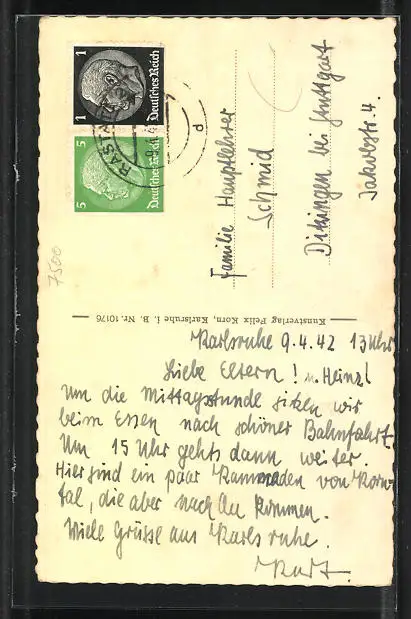 1 1
Deutsches Reich
5 5
Deutsches Reich
Familie Hauptlehrer
Schmid
Ditzingen bei Stuttgart
Jakobstr. 4.
7500
Kunstverlag Felix Korn, Karlsruhe i. B. Nr. 10176
Karlsruhe 9.4.42 13 Uhr
Liebe Eltern! u. Heinz!
Um die Mittagsstunde sitzen wir
beim Essen nach schöner Bahnfahrt.
Um 15 Uhr gehts dann weiter.
Hier sind ein paar Kameraden von Korn-
tal, die aber nach kommen.
Viele Grüsse aus Karlsruhe.
Kurt.